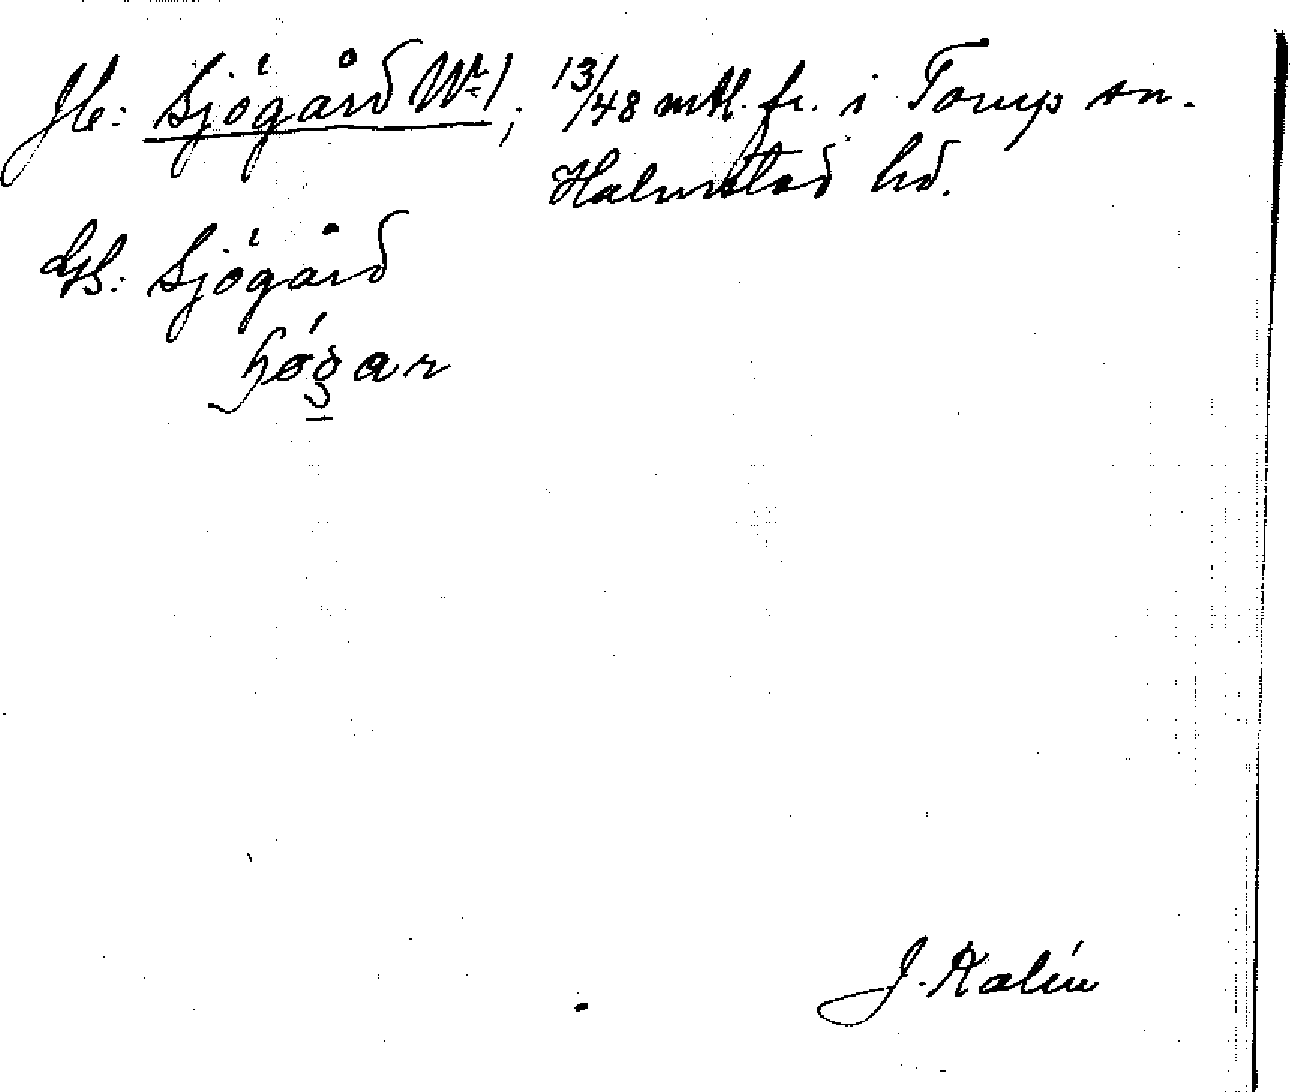 Jb: Sjögård Nr 1; 13/48 mtl. fr. i Torup sn.
Halmstad hd.
Gs: Sjögård
J. Kalén